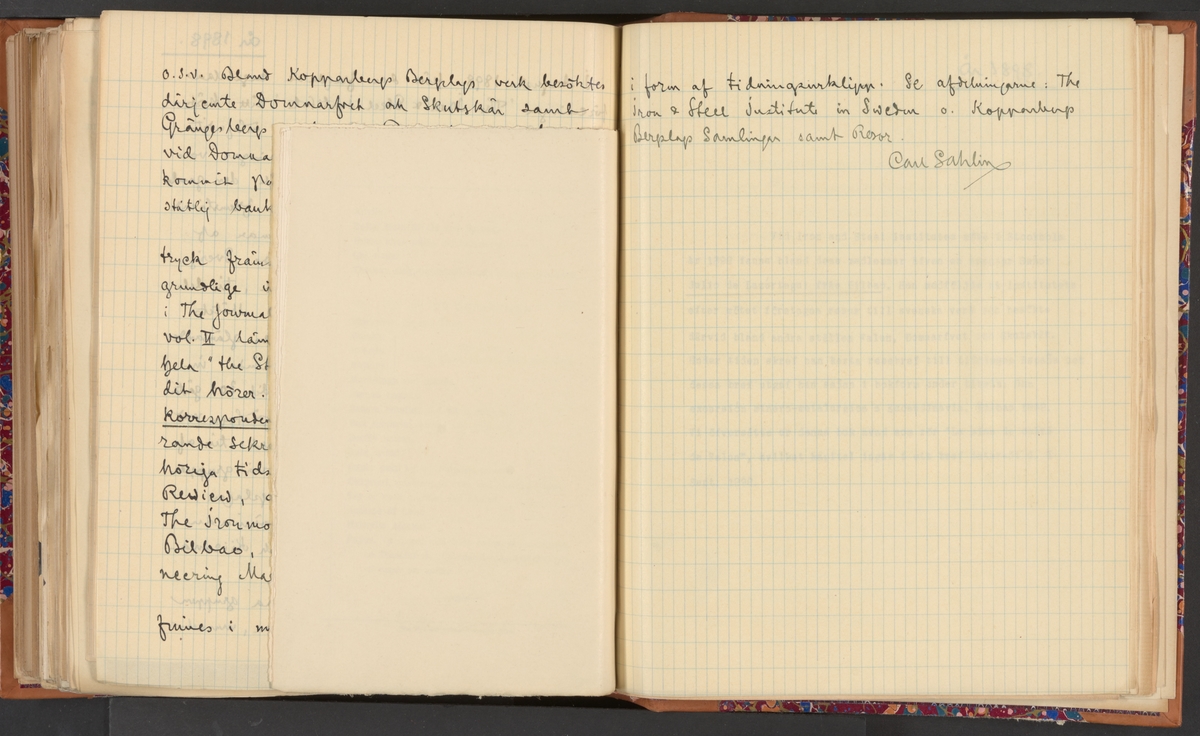 o.s.v. Bland Kopparbergs Bergslags verk besöktes
därjemte Domnarfvet och Skutskär samt
Grängesberg
vid Domna
kommit på
ståtlig bank
tryck främ
grundlige
i The Journa
vol. II läm
hela "the St
dit hörer.
korresponden
rande sekre
höriga tids
Rewiew,
The Ironmo
Bilbao,
neering Ma
finnes i m
i form af tidningsurklipp. Se afdelningarne: The
Iron & Steel Institute in Sweden o. Kopparbergs
Bergslags Samlingar samt Resor.
Carl Sahlin